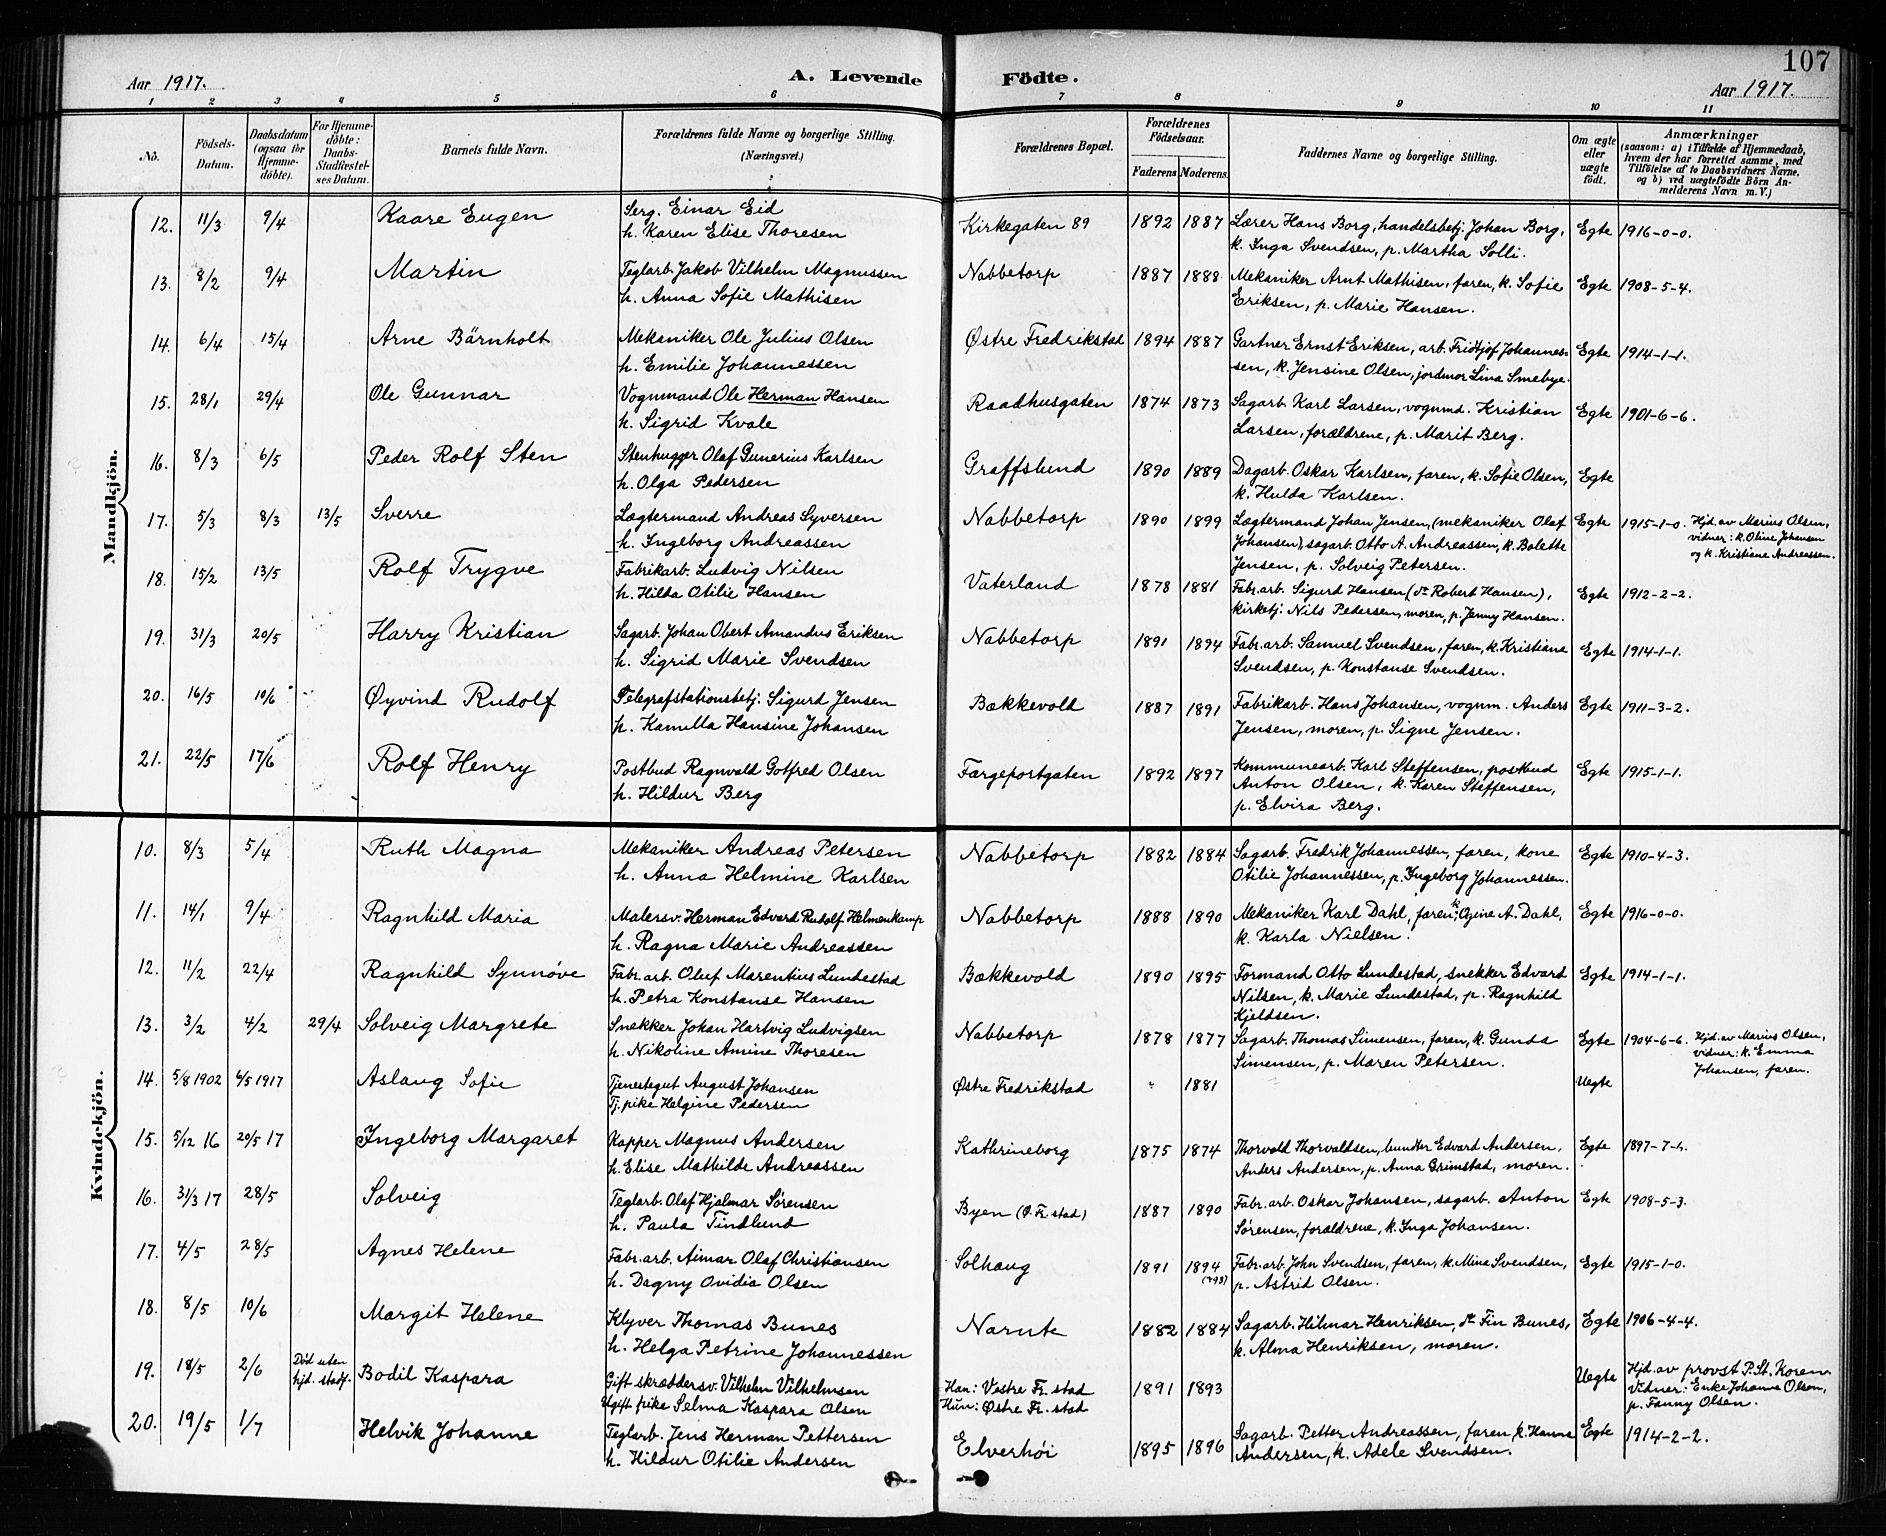 107
Aar 1917.
A. Levende Födte.
Aar 1917.
1 2 3 4 5 6 7 8 9 10 11
No.
Födsels-Datum.
Daabsdatum (ogsaa for Hjemme-döbte).
For Hjemme-döbte: Daabs-Stadfæstel-ses Datum.
Barnets fulde Navn.
Forældrenes fulde Navne og borgerlige Stilling. (Næringsvei.)
Forældrenes Bopæl.
Forældrenes Födselsaar.
Faderens. Moderens.
Faddernes Navne og borgerlige Stilling.
Om ægte eller uægte født.
Anmærkninger
(saasom: a) i Tilfælde af Hjemmedaab, hvem der har forrettet samme, med Tilföielse af to Daabsvidners Navne, og b) ved uægtefödte Börn An-melderens Navn m. V.)
Mandkjön.
12. 11/3 9/4 Kaare Eugen Serg. Einar Eid Kirkegaten 89 1892 1887 Lærer Hans Borg, handelsbetj. Johan Borg, Egte 1916-0-0.
h. Karen Elise Thoresen k. Inga Svendsen, p. Martha Solli.
13. 8/2 9/4 Martin Teglarb. Jakob Vilhelm Magnussen Nabbetorp 1887 1888 Mekaniker Arnt Mathisen, faren, k. Sofie Egte 1908-5-4.
h. Anna Sofie Mathisen Eriksen, p. Marie Hansen.
14. 6/4 15/4 Arne Bärnholt Mekaniker Ole Julius Olsen Østre Fredrikstad 1894 1887 Gartner Ernst Eriksen, arb. Fridtjof Johannes- Egte 1914-1-1.
h. Emilie Johannessen sen, k. Jensine Olsen, jordmor Lina Smebye.
15. 28/1 29/4 Ole Gunnar Vognmand Ole Herman Hansen Raadhusgaten 1874 1873 Sagarb. Karl Larsen, vognmd. Kristian Egte 1901-6-6.
h. Sigrid Kvale Larsen, forældrene, p. Marit Berg.
16. 8/3 6/5 Peder Rolf Sten Stenhugger Olaf Gunerius Karlsen Graffslund 1890 1889 Dagarb. Oskar Karlsen, faren, k. Sofie Olsen, Egte
h. Olga Pedersen k. Hulda Karlsen.
17. 5/3 8/3 13/5 Sverre Lægtermand Andreas Syversen Nabbetorp 1890 1899 Lægtermand Johan Jensen, (mekaniker Olaf Egte 1915-1-0. Hjd. av Marius Olsen,
h. Ingeborg Andreassen Johansen), sagarb. Otto A. Andreassen, k. Bolette vidner: k. Oline Johansen
Jensen, p. Solveig Petersen. og k. Kristiane Andreassen.
18. 15/2 13/5 Rolf Trygve Fabrikarb. Ludvig Nilsen Vaterland 1878 1881 Fabr. arb. Sigurd Hansen (st. Robert Hansen), Egte 1912-2-2.
h. Hilda Otilie Hansen kirketj. Nils Pedersen, moren, p. Jenny Hansen.
19. 31/3 20/5 Harry Kristian Sagarb. Johan Obert Amandus Eriksen Nabbetorp 1891 1894 Fabr. arb. Samuel Svendsen, faren, k. Kristiane Egte 1914-1-1.
h. Sigrid Marie Svendsen Svendsen, p. Konstanse Svendsen.
20. 16/5 10/6 Øyvind Rudolf Telegrafstationsbetj. Sigurd Jensen Bækkevold 1887 1891 Fabrikarb. Hans Johansen, vognm. Anders Egte 1911-3-2.
h. Kamilla Hansine Johansen Jensen, moren, p. Signe Jensen.
21. 22/5 17/6 Rolf Henry Postbud Ragnvald Gotfred Olsen Færgeportgaten 1892 1897 Kommunearb. Karl Steffensen, postbud Egte 1915-1-1.
h. Hildur Berg Anton Olsen, k. Karen Steffensen,
p. Elvira Berg.
Kvindekjön.
10. 8/3 5/4 Ruth Magna Mekaniker Andreas Petersen Nabbetorp 1882 1884 Sagarb. Fredrik Johannessen, faren, kone Egte 1910-4-3.
h. Anna Helmine Karlsen Otilie Johannessen, p. Ingeborg Johannessen.
11. 14/1 9/4 Ragnhild Maria Malersv. Herman Edvard Rudolf Helmenkamp Nabbetorp 1888 1890 Mekaniker Karl Dahl, faren, k. Ogine A. Dahl, Egte 1916-0-0.
h. Ragna Marie Andreassen k. Karla Nielsen.
12. 11/2 22/4 Ragnhild Synnöve Fabr. arb. Oluf Marentius Lundestad Bækkevold 1890 1895 Formand Otto Lundestad, snekker Edvard Egte 1914-1-1.
h. Petra Konstanse Hansen Nilsen, k. Marie Lundestad, p. Ragnhild
Kjeldsen.
13. 3/2 4/2 29/4 Solveig Margrete Snekker Johan Hartvig Ludvigsen Nabbetorp 1878 1877 Sagarb. Thomas Simensen, faren, k. Gunda Egte 1904-6-6. Hjd. av Marius Olsen,
h. Nikoline Amine Thoresen Simensen, p. Maren Petersen. vidner: k. Emma
Johansen, faren.
14. 5/8 1902 6/5 1917 Aslaug Sofie Tjenestegut August Johansen Østre Fredrikstad 1881 Uegte
Tj. pike Helgine Pedersen
15. 5/12 16 20/5 17 Ingeborg Margaret Kapper Magnus Andersen Kathrineborg 1875 1874 Thorvald Thorvaldsen, bundter Edvard Andersen, Egte 1897-7-4.
h. Elise Mathilde Andreassen Anders Andersen, p. Anna Grimstad, moren.
16. 31/3 17 28/5 Solveig Teglarb. Olaf Hjalmar Sørensen Byen (Ø. Fr. stad) 1887 1890 Fabr. arb. Oskar Johansen, sagarb. Anton Egte 1908-5-3.
h. Paula Tindlund Sørensen, forældrene, k. Inga Johansen.
17. 4/5 28/5 Agnes Helene Fabr. arb. Aimar Olaf Christiansen Solhaug 1891 1894 Fabr. arb. John Svendsen, faren, k. Mina Svendsen, Egte 1915-1-0.
h. Dagny Ovidia Olsen p. Astrid Olsen.
18. 8/5 10/6 Margit Helene Klyver Thomas Bunes Narnte 1882 1884 Sagarb. Hilmar Henriksen, st. Fin Bunes, Egte 1906-4-4.
h. Helga Petrine Johannessen k. Alma Henriksen, moren.
19. 18/5 2/6 Död uten hjd. stadf. Bodil Kaspara Gift skræddersv. Vilhelm Vilhelmsen Han: Vestre Fr. stad 1891 1893 Uegte Hjd. av provst P. St. Koren.
Ugift pike Selma Kaspara Olsen Hun: Østre Fr. stad Vidner: Enke Johanne Olsen,
p. Fanny Olsen.
20. 19/5 1/7 Helvik Johanne Teglarb. Jens Herman Pettersen Elverhöi 1895 1896 Sagarb. Petter Andreassen, faren, k. Hanna Egte 1914-2-2.
h. Hildur Otilie Andersen Andersen, k. Adele Svendsen.